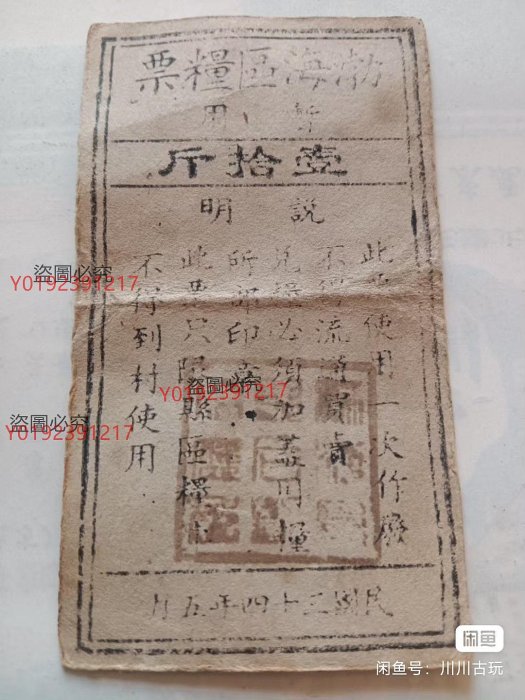 渤海區糧票
暫用
壹拾斤
說明
此票使用一次作廢
不得流通買賣
兌糧必須加蓋用糧
所部印
此票只限縣區糧
不得到村使用
民國三十四年五月
盜圖必究
Y0192391217
盜圖必究
Y0192391217
盜圖必究
Y0192391217
闲鱼
闲鱼号：川川古玩